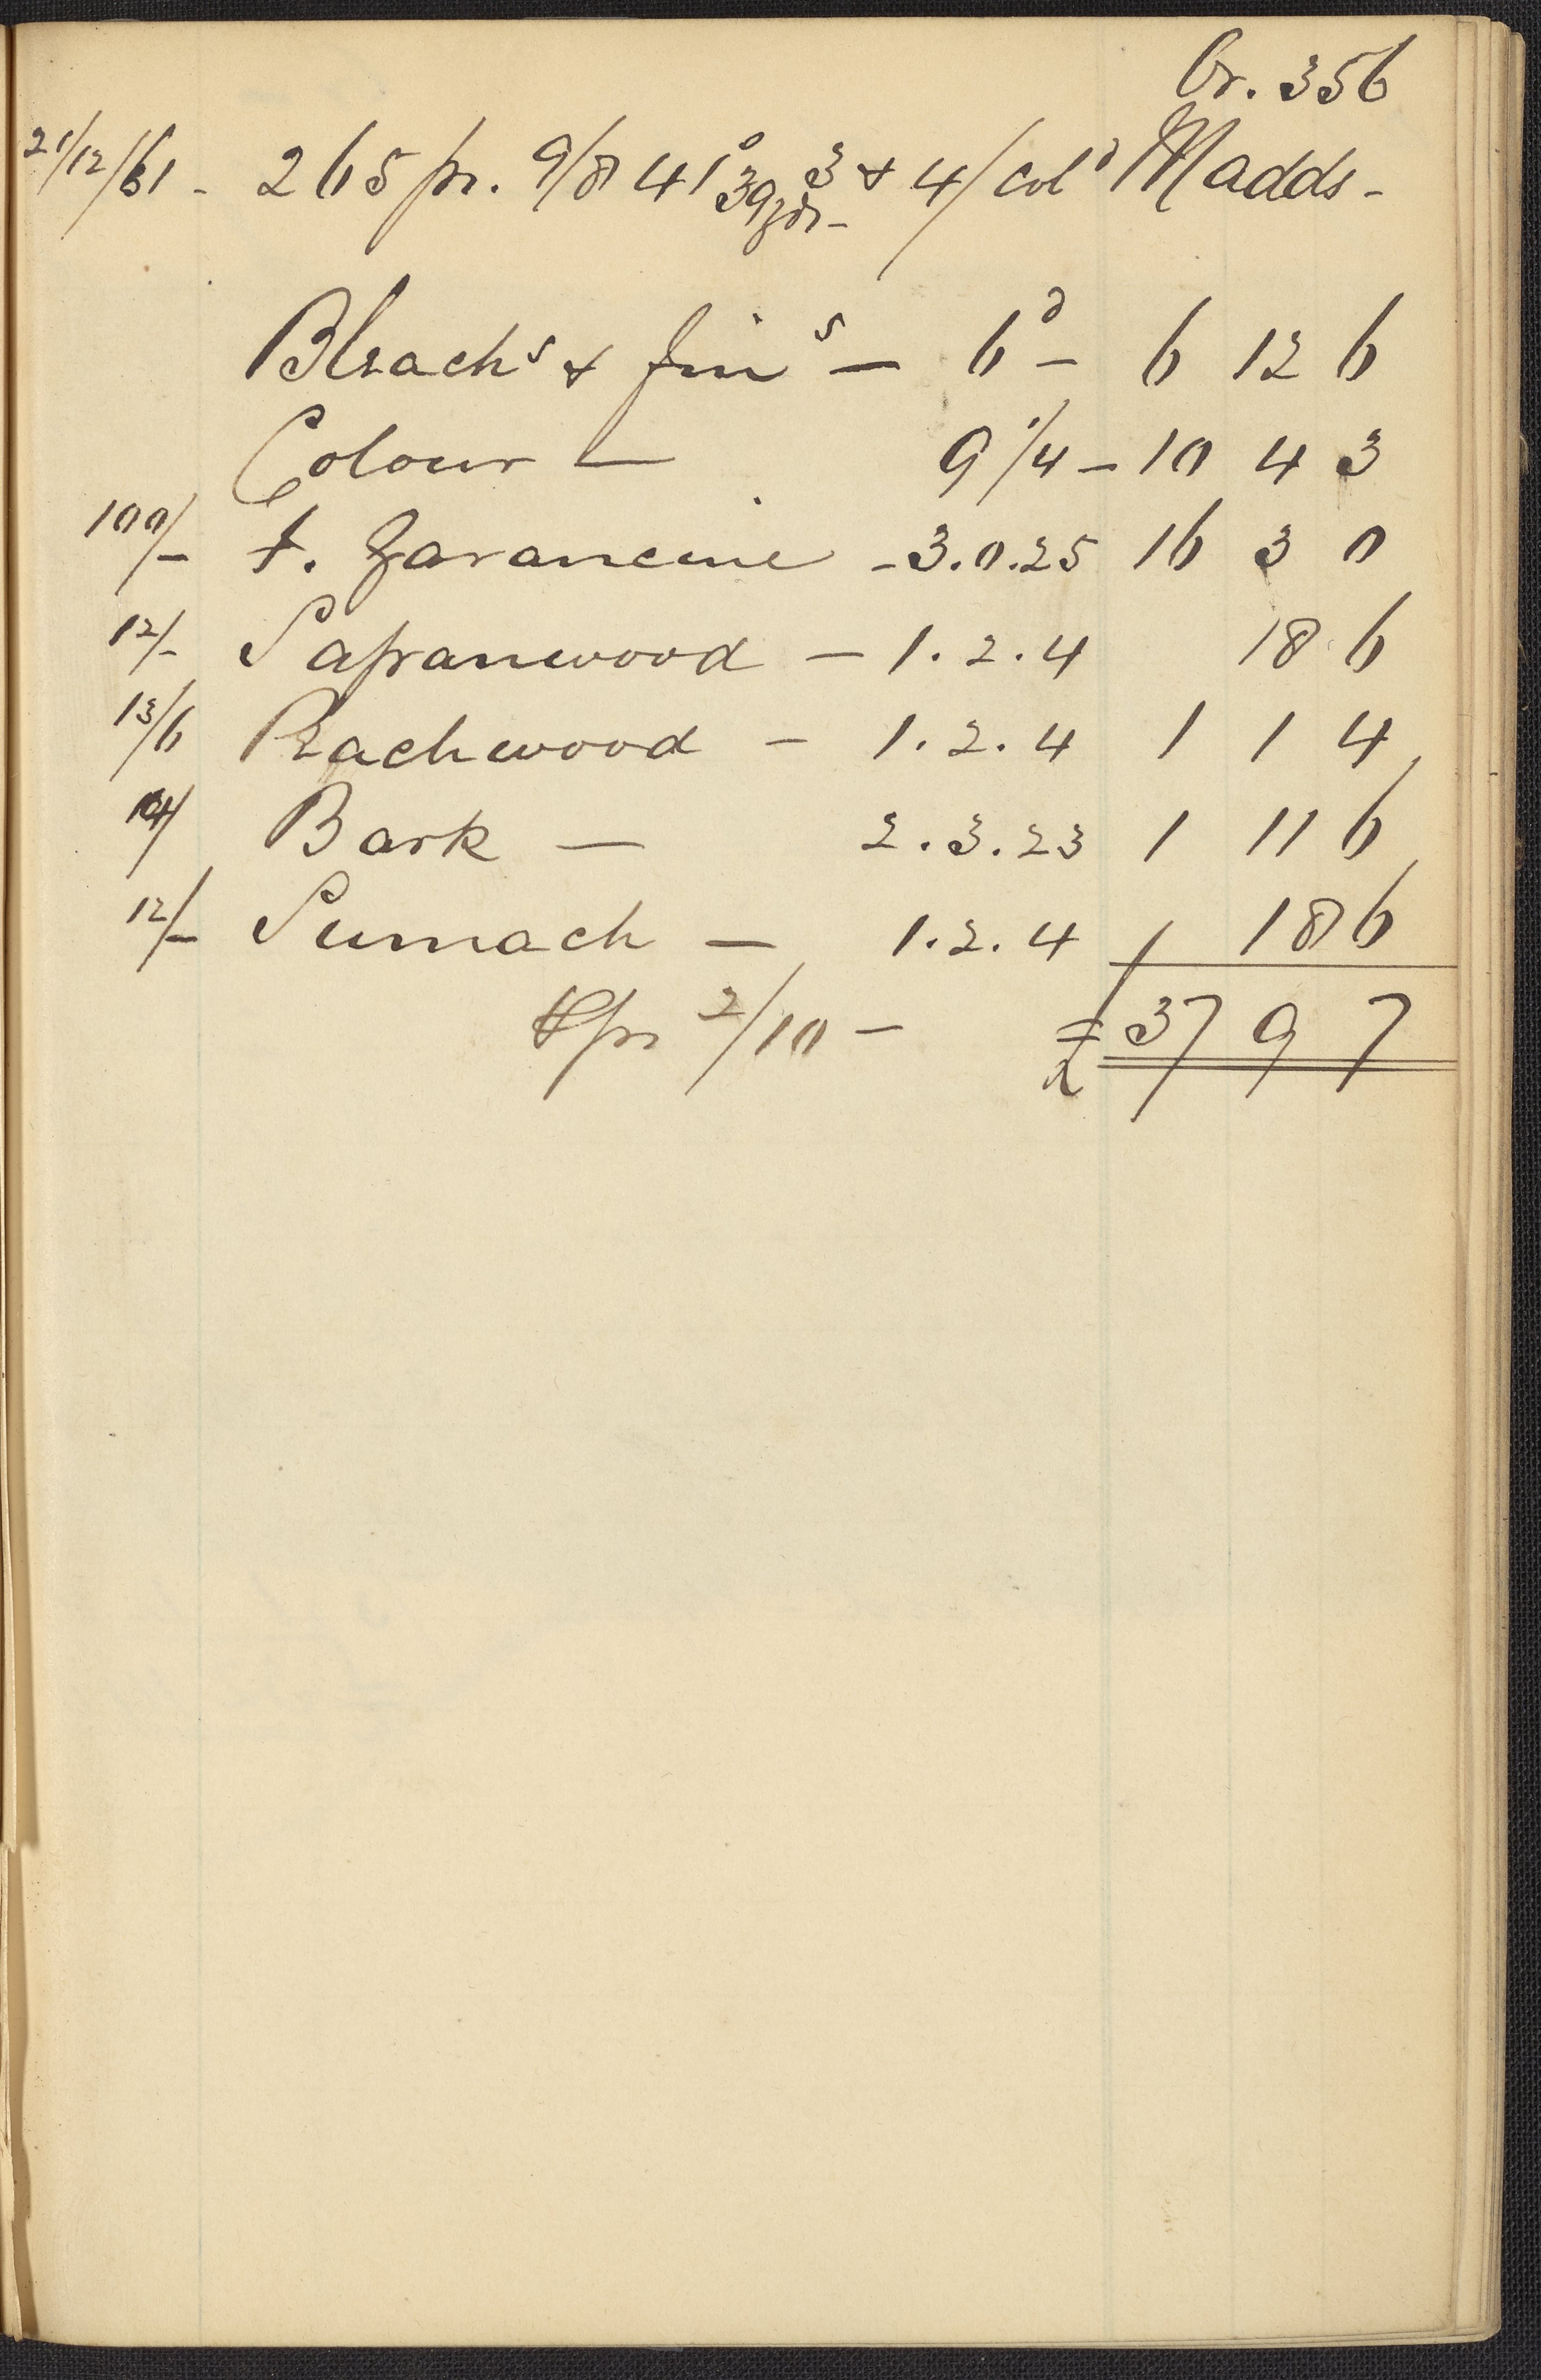 Cr. 356
21/12/61 - 265 ps. 9/8 41° 39yds - 3 & 4/Col^d Madds -
Bleach^s & fin^s — 6^d — 6 12 6
Colour — 9 1/4 — 10 4 3
100/- F. Garancine - 3.0.25 16 3 0
12/- Sapanwood — 1.2.4 18 6
13/6 Peachwood — 1.2.4 1 1 4
Bark — 2.3.23 1 11 6
12/- Sumach — 1.2.4 18 6
2/10 — £ 37 9 7